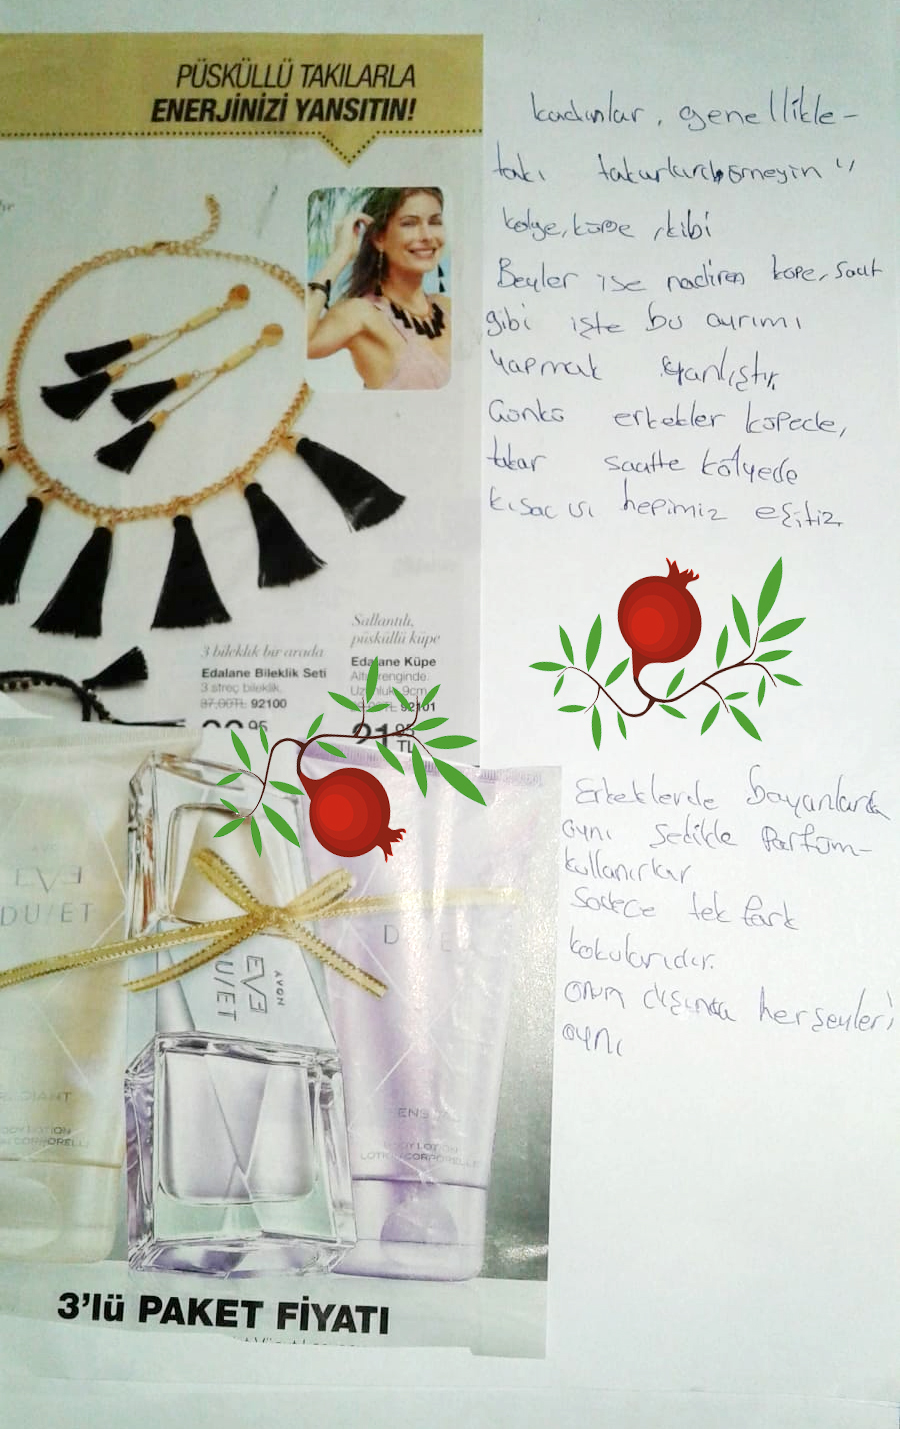 PÜSKÜLLÜ TAKILARLA
ENERJİNİZİ YANSITIN!
kadınlar, genellikle-
takı takarlar örneyin "
kolye, küpe, kibi
Beyler ise nadiren küpe, saat
gibi işte bu ayrımı
yapmak yanlıştır
Çünkü erkekler küpede,
takar saatte kolyede
kısacısı hepimiz eşitiz
3 bileklik bir arada
Edalane Bileklik Seti
3 streç bileklik.
37,00TL 92100
95
Sallantılı,
püsküllü küpe
Edalane Küpe
Altın renginde.
Uzunluk: 9cm
TL 92101
21 95
TL
Erkeklerde bayanlarda
aynı şekilde parfüm-
kullanırlar
Sadece tek fark
kokularıdır.
onun dışında herşeyleri
aynı
EVE
DU/ET
RADIANT
BODY LOTION
CORPORELLE
AVON
EVE
DU/ET
D
SENSUAL
BODY LOTION
LOTION CORPORELLE
3'lü PAKET FİYATI